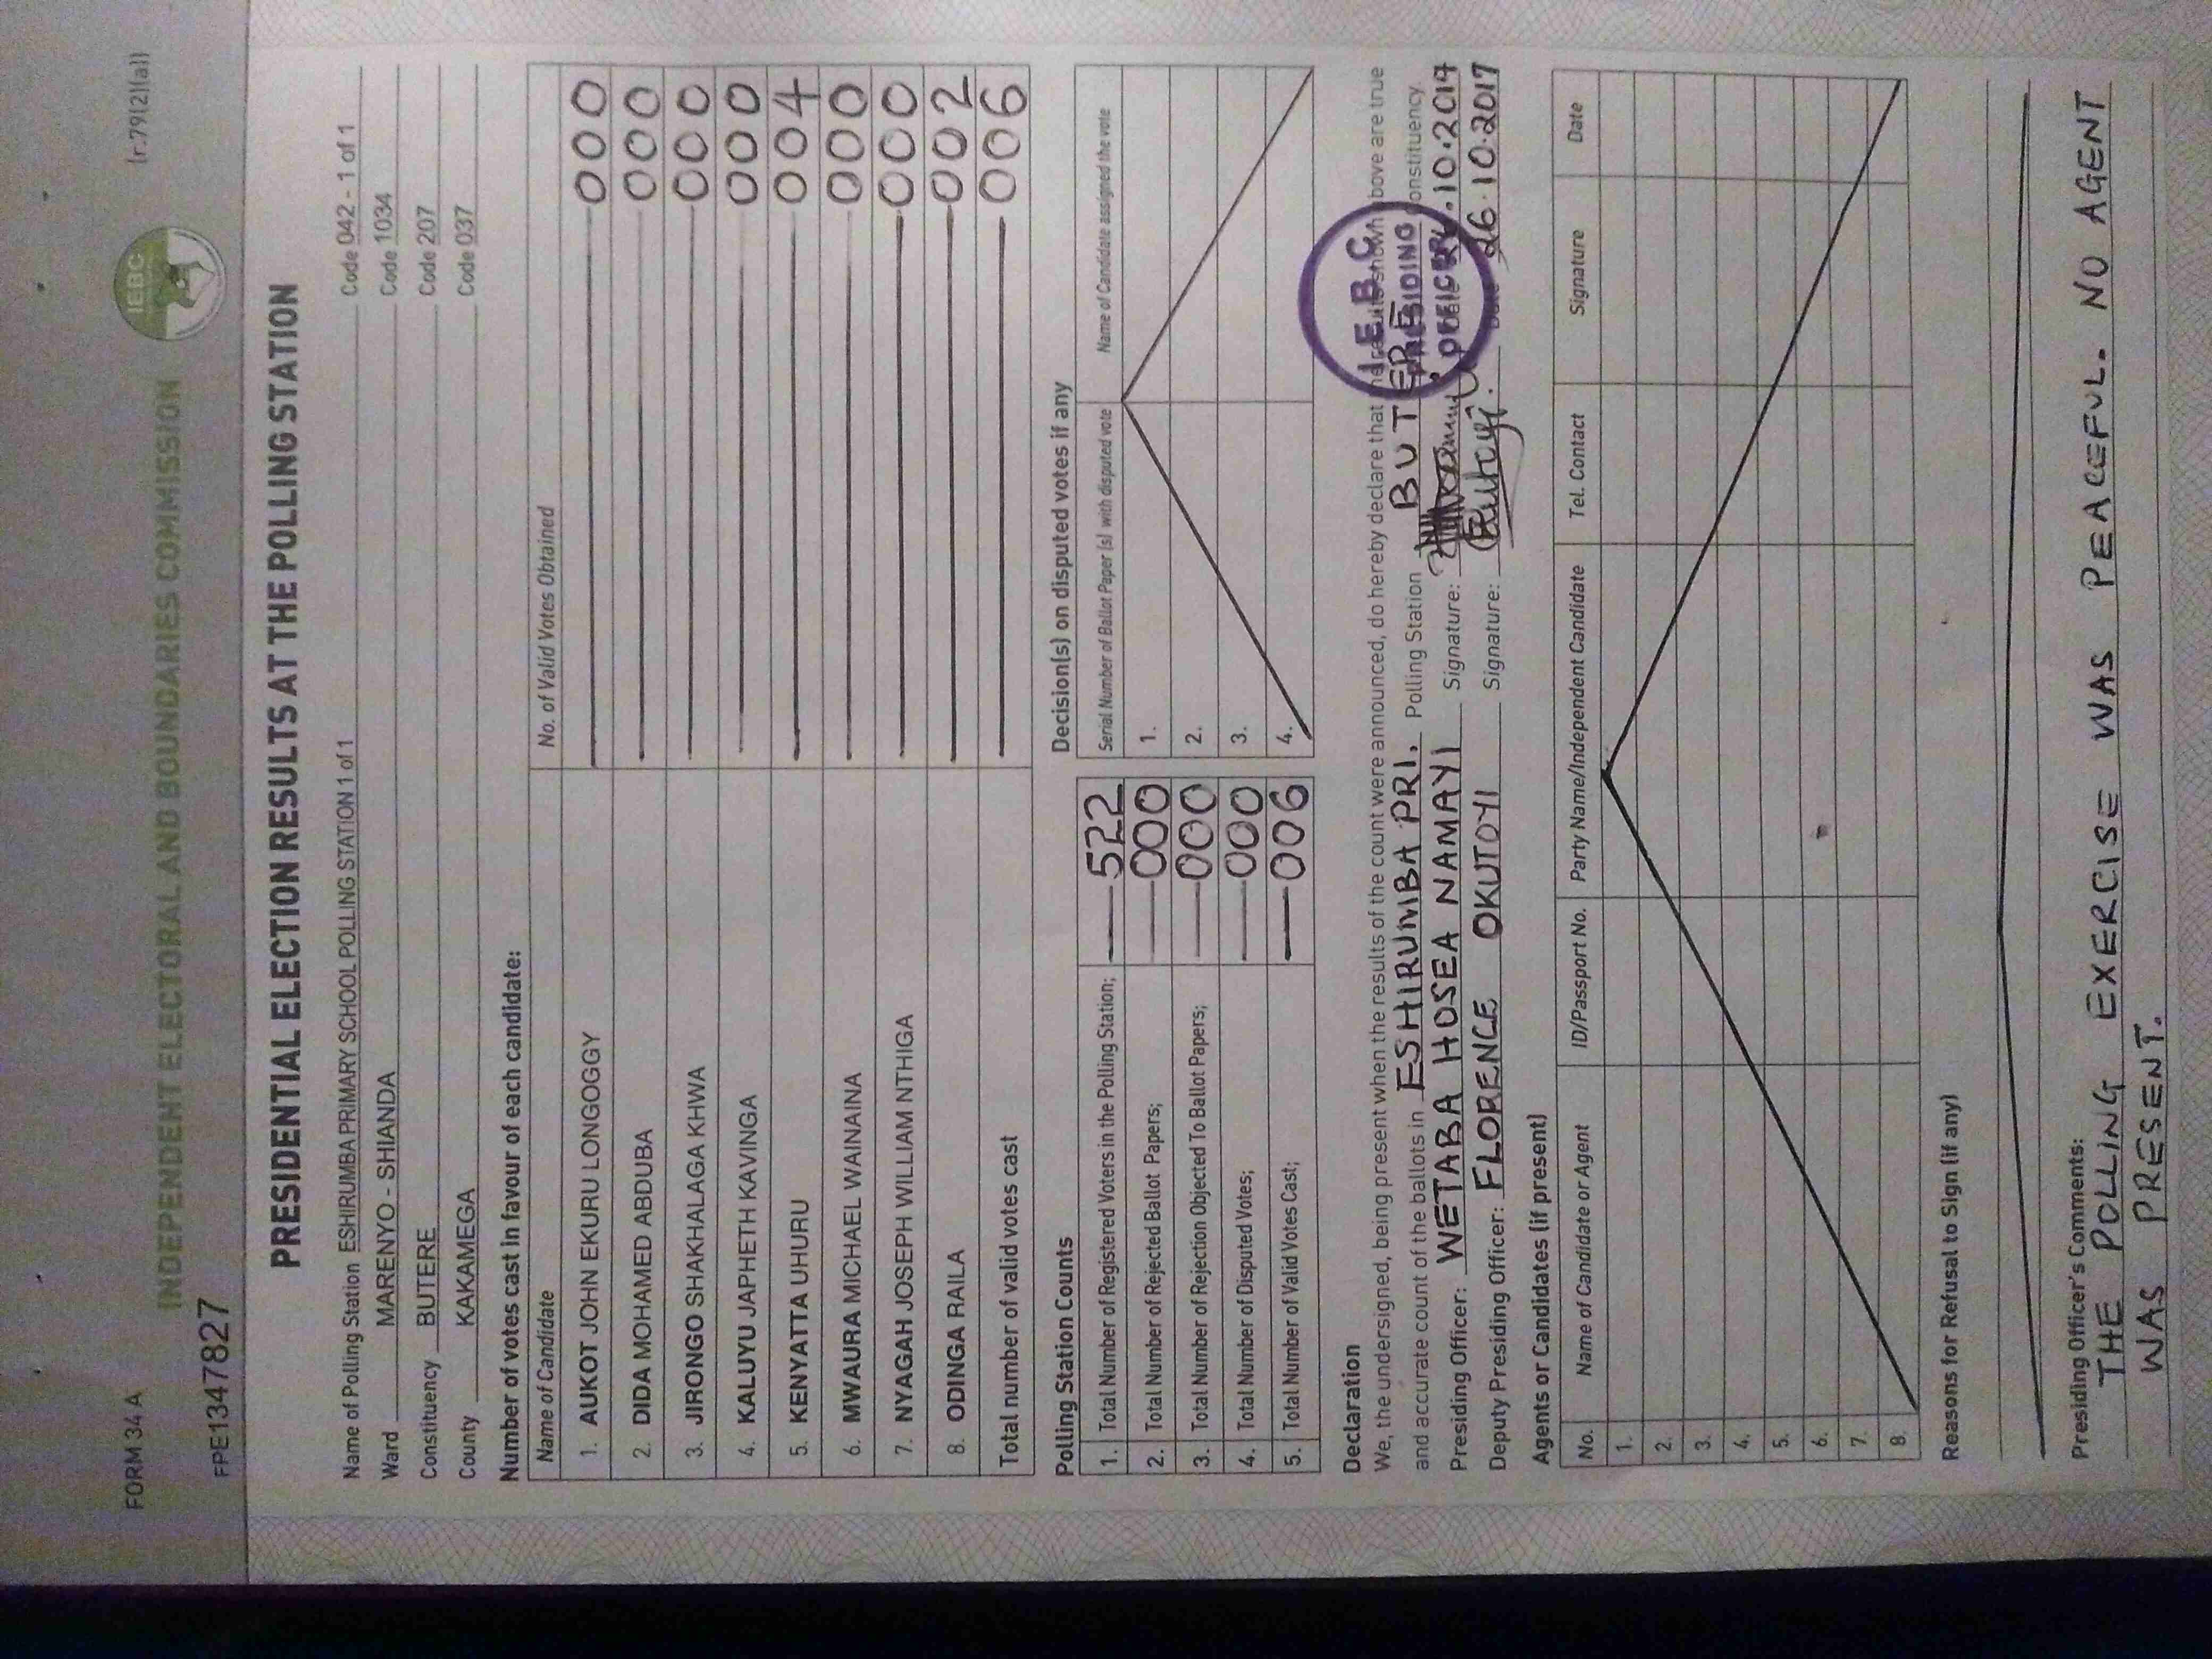 FORM 34 A
(r.79(2)(a))
INDEPENDENT ELECTORAL AND BOUNDARIES COMMISSION
IEBC
FPE1347827
PRESIDENTIAL ELECTION RESULTS AT THE POLLING STATION
Name of Polling Station ESHIRUMBA PRIMARY SCHOOL POLLING STATION 1 of 1 Code 042 - 1 of 1
Ward MARENYO - SHIANDA Code 1034
Constituency BUTERE Code 207
County KAKAMEGA Code 037
Number of votes cast in favour of each candidate:
Name of Candidate No. of Valid Votes Obtained
1. AUKOT JOHN EKURU LONGOGGY 000
2. DIDA MOHAMED ABDUBA 000
3. JIRONGO SHAKHALAGA KHWA 000
4. KALUYU JAPHETH KAVINGA 000
5. KENYATTA UHURU 004
6. MWAURA MICHAEL WAINAINA 000
7. NYAGAH JOSEPH WILLIAM NTHIGA 000
8. ODINGA RAILA 002
Total number of valid votes cast 006
Polling Station Counts
1. Total Number of Registered Voters in the Polling Station; 522
2. Total Number of Rejected Ballot Papers; 000
3. Total Number of Rejection Objected To Ballot Papers; 000
4. Total Number of Disputed Votes; 000
5. Total Number of Valid Votes Cast; 006
Decision(s) on disputed votes if any
Serial Number of Ballot Paper (s) with disputed vote Name of Candidate assigned the vote
1.
2.
3.
4.
Declaration
We, the undersigned, being present when the results of the count were announced, do hereby declare that the results shown above are true
and accurate count of the ballots in ESHIRUMBA PRI. Polling Station BUTERE Constituency
Presiding Officer: WETABA HOSEA NAMAYI Signature: .10.2017
Deputy Presiding Officer: FLORENCE OKUTOYI Signature: Date 26.10.2017
I.E.B.C
PRESIDING
OFFICER
Agents or Candidates (if present)
No. Name of Candidate or Agent ID/Passport No. Party Name/Independent Candidate Tel. Contact Signature Date
1.
2.
3.
4.
5.
6.
7.
8.
Reasons for Refusal to Sign (if any)
Presiding Officer's Comments:
THE POLLING EXERCISE WAS PEACEFUL. NO AGENT
WAS PRESENT.